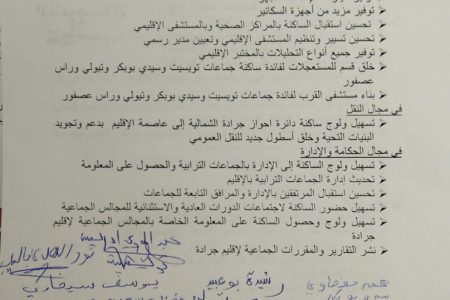 ➢ توفير مزيد من أجهزة السكانير
➢ تحسين استقبال الساكنة بالمراكز الصحية وبالمستشفى الإقليمي
➢ تحسين تسيير وتنظيم المستشفى الإقليمي وتعيين مدير رسمي
➢ توفير جميع أنواع التحليلات بالمختبر الإقليمي
➢ خلق قسم للمستعجلات لفائدة ساكنة جماعات تويسيت وسيدي بوبكر وتيولي وراس
عصفور
➢ بناء مستشفى القرب لفائدة جماعات تويسيت وسيدي بوبكر وتيولي وراس عصفور
في مجال النقل
➢ تسهيل ولوج ساكنة دائرة احواز جرادة الشمالية إلى عاصمة الإقليم بدعم وتجويد
البنيات التحتية وخلق أسطول جديد للنقل العمومي
في مجال الحكامة والإدارة
➢ تسهيل ولوج الساكنة إلى الإدارة بالجماعات الترابية والحصول على المعلومة
➢ تحديث إدارة الجماعات الترابية بالإقليم
➢ تحسين استقبال المرتفقين بالإدارة والمرافق التابعة للجماعات
➢ تسهيل حضور الساكنة لاجتماعات الدورات العادية والاستثنائية للمجالس الجماعية
➢ تسهيل ولوج وحصول الساكنة على المعلومة الخاصة بالمجالس الجماعية لإقليم
جرادة
➢ نشر التقارير والمقررات الجماعية لإقليم جرادة
يوسف